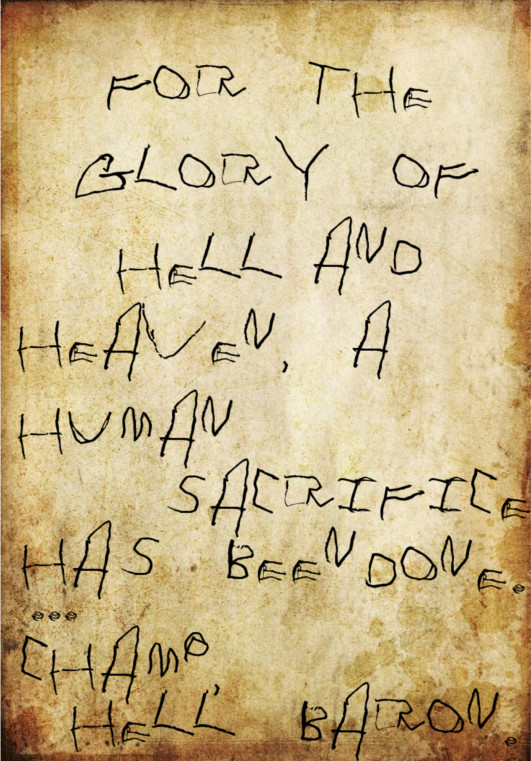 FOR THE
GLORY OF
HELL AND
HEAVEN, A
HUMAN
SACRIFICE
HAS BEEN DONE.
...
CHAMP,
HELL BARON.